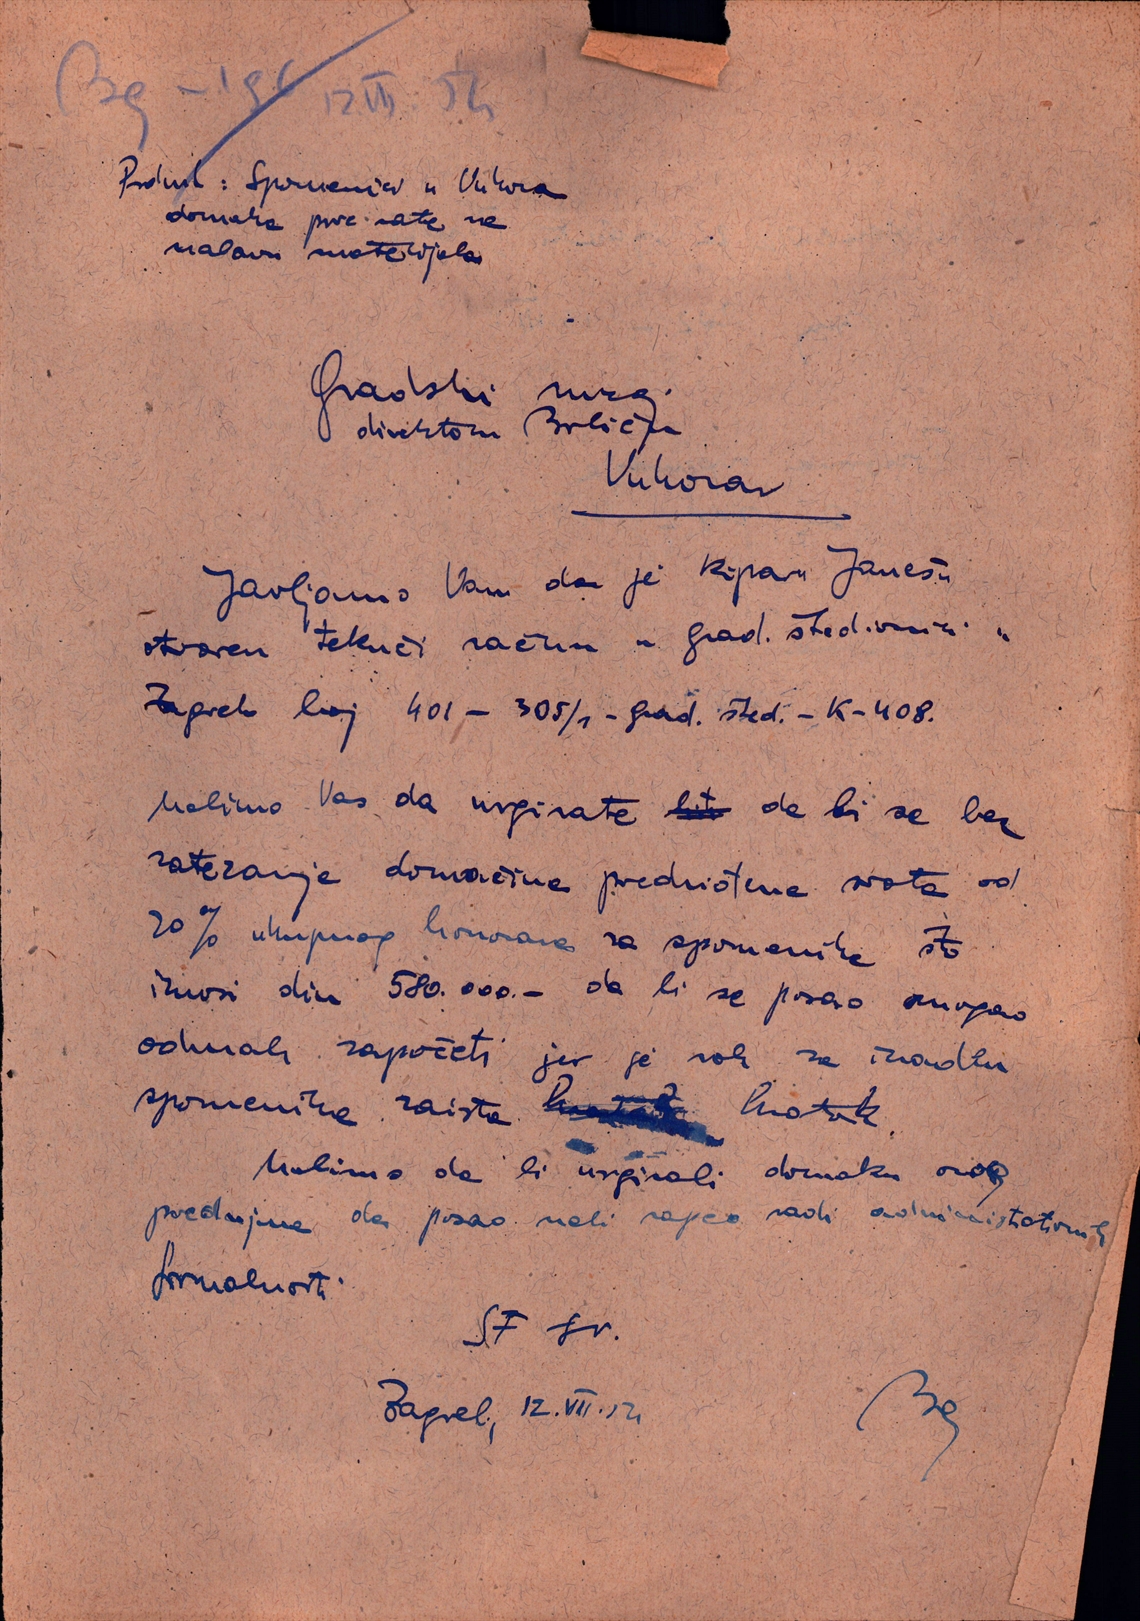 Bg – 196 12 VII. 54
Predmet: Spomenici u Vukova
doznaka prve rate na
nabavu materijala
Gradski muzej
direktoru Brlićju
Vukovar
Javljamo Vam da je kiparu Janešu
otvoren tekući račun u grad. štedionici u
Zagreb broj 401 – 305/1 – grad. šted. – K – 408.
Molimo Vas da urgirate da bi se bez
zatezanja doznačina predviđena svota od
20% ukupnog honorara za spomenike što
iznosi din 580.000.– da bi se posao mogao
odmah započeti jer je rok za izradbu
spomenika zaista kratak.
Molimo da bi urgirali doznaku ovog
predujma da posao nebi zapeo radi administrativnih
formalnosti.
SF Sn.
Zagreb, 12.VII.54
Bg